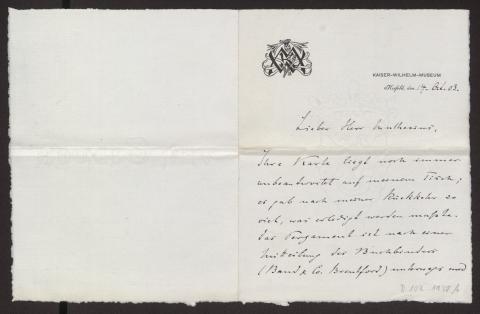 KAISER-WILHELM-MUSEUM
Krefeld, den 14. Oct. 03.
Lieber Herr Muthesius,
Ihre Karte liegt noch immer
unbeantwortet auf meinem Tisch;
es gab nach meiner Rückkehr so
viel, was erledigt werden mußte.
Das Pergament ist nach einer
Mitteilung des Buchbinders
(Band & Co. Brentford) unterwegs und
D 102